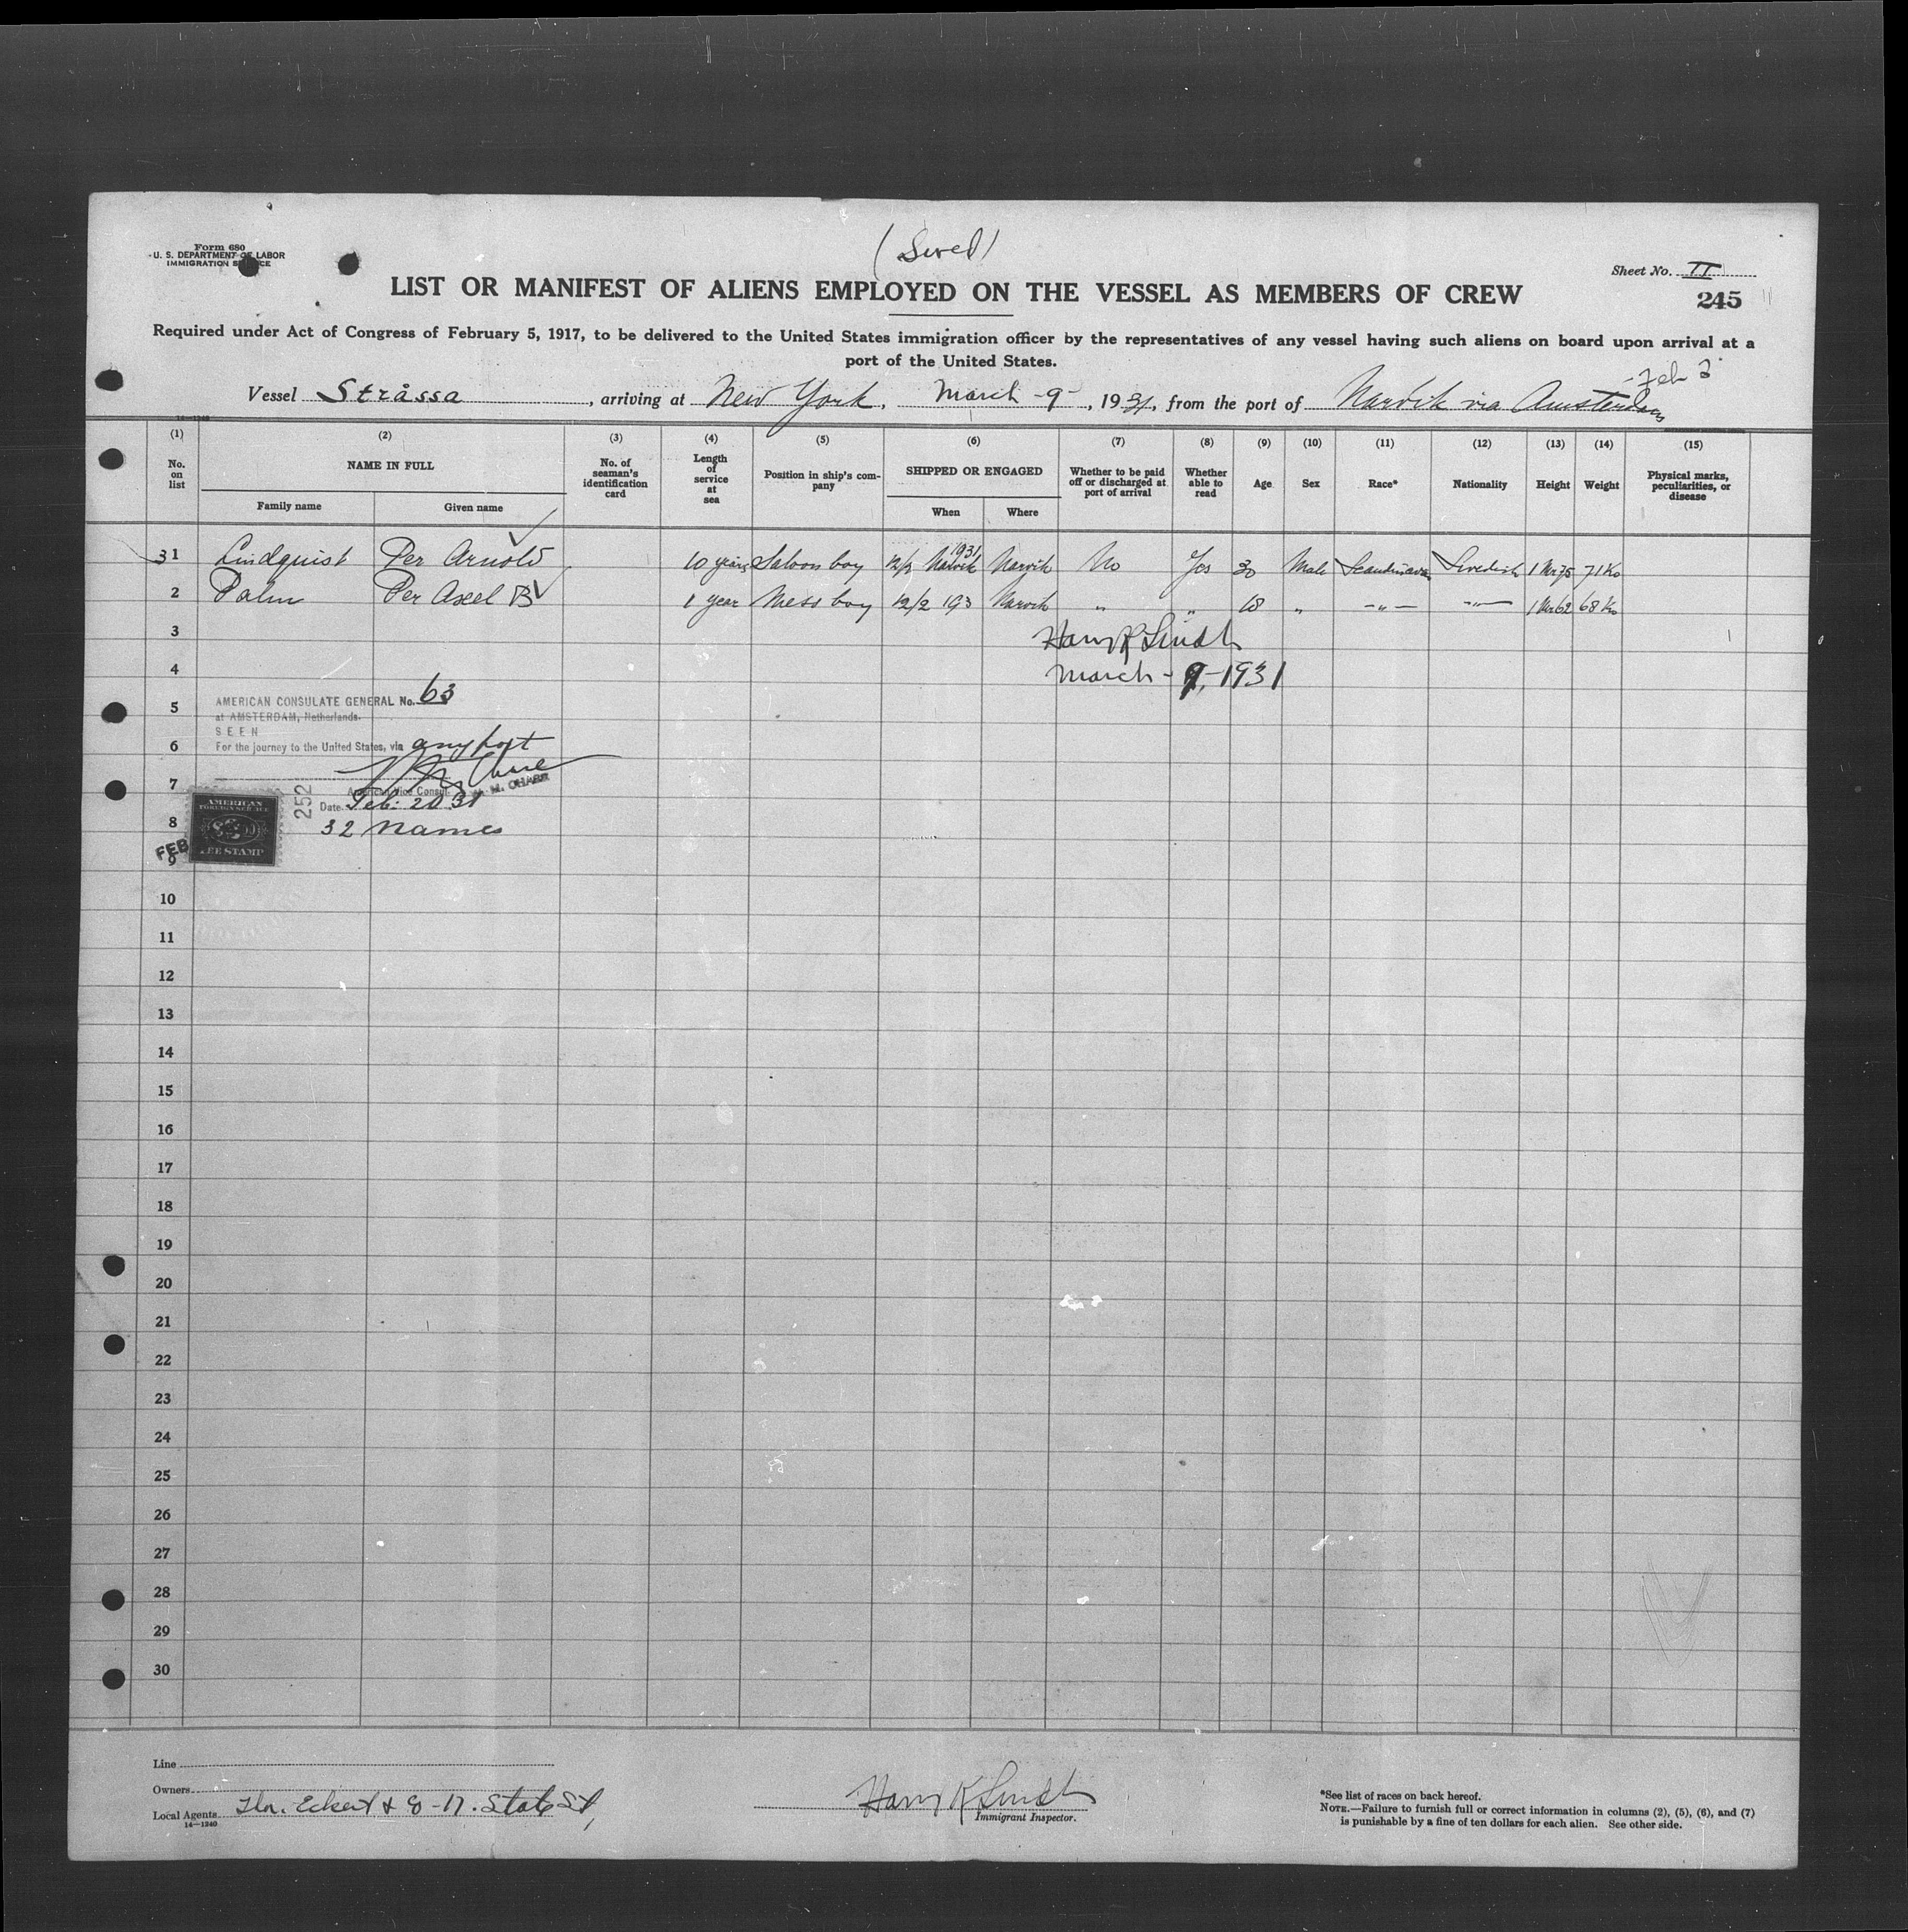 Form 680
U. S. DEPARTMENT OF LABOR
IMMIGRATION SERVICE
(Swed)
Sheet No. II
LIST OR MANIFEST OF ALIENS EMPLOYED ON THE VESSEL AS MEMBERS OF CREW
245
Required under Act of Congress of February 5, 1917, to be delivered to the United States immigration officer by the representatives of any vessel having such aliens on board upon arrival at a
port of the United States.
Feb 2
Vessel Stråssa, arriving at New York, March -9-, 1931, from the port of Narvik via Amsterdam
14—1240
(1) (2) (3) (4) (5) (6) (7) (8) (9) (10) (11) (12) (13) (14) (15)
No. on list NAME IN FULL No. of seaman's identification card Length of service at sea Position in ship's company SHIPPED OR ENGAGED Whether to be paid off or discharged at port of arrival Whether able to read Age Sex Race* Nationality Height Weight Physical marks, peculiarities, or disease
Family name Given name When Where
31 Lindquist Per Arnold 10 years Saloon boy 12/2 1931 Narvik Narvik No Yes 30 Male Scandinavian Swedish 1 Mr 75 71 Ko
2 Palm Per Axel B 1 year Mess boy 12/2 193 Narvik " " 18 " -"- -"- 1 Mr 62 68 Ko
3 Harry K Lindh
4 March - 9, - 1931
5 AMERICAN CONSULATE GENERAL No. 63
at AMSTERDAM, Netherlands.
SEEN
6 For the journey to the United States, via any port
7
American Vice Consul.
252
Date Feb. 20 31
8 32 names
AMERICAN
FOREIGN SERVICE
FEE STAMP
FEB
9
10
11
12
13
14
15
16
17
18
19
20
21
22
23
24
25
26
27
28
29
30
Line
Owners
Local Agents Thr. Eckert & 8-17. State St,
14—1240
Harry K Lindh
Immigrant Inspector.
*See list of races on back hereof.
NOTE.—Failure to furnish full or correct information in columns (2), (5), (6), and (7)
is punishable by a fine of ten dollars for each alien. See other side.